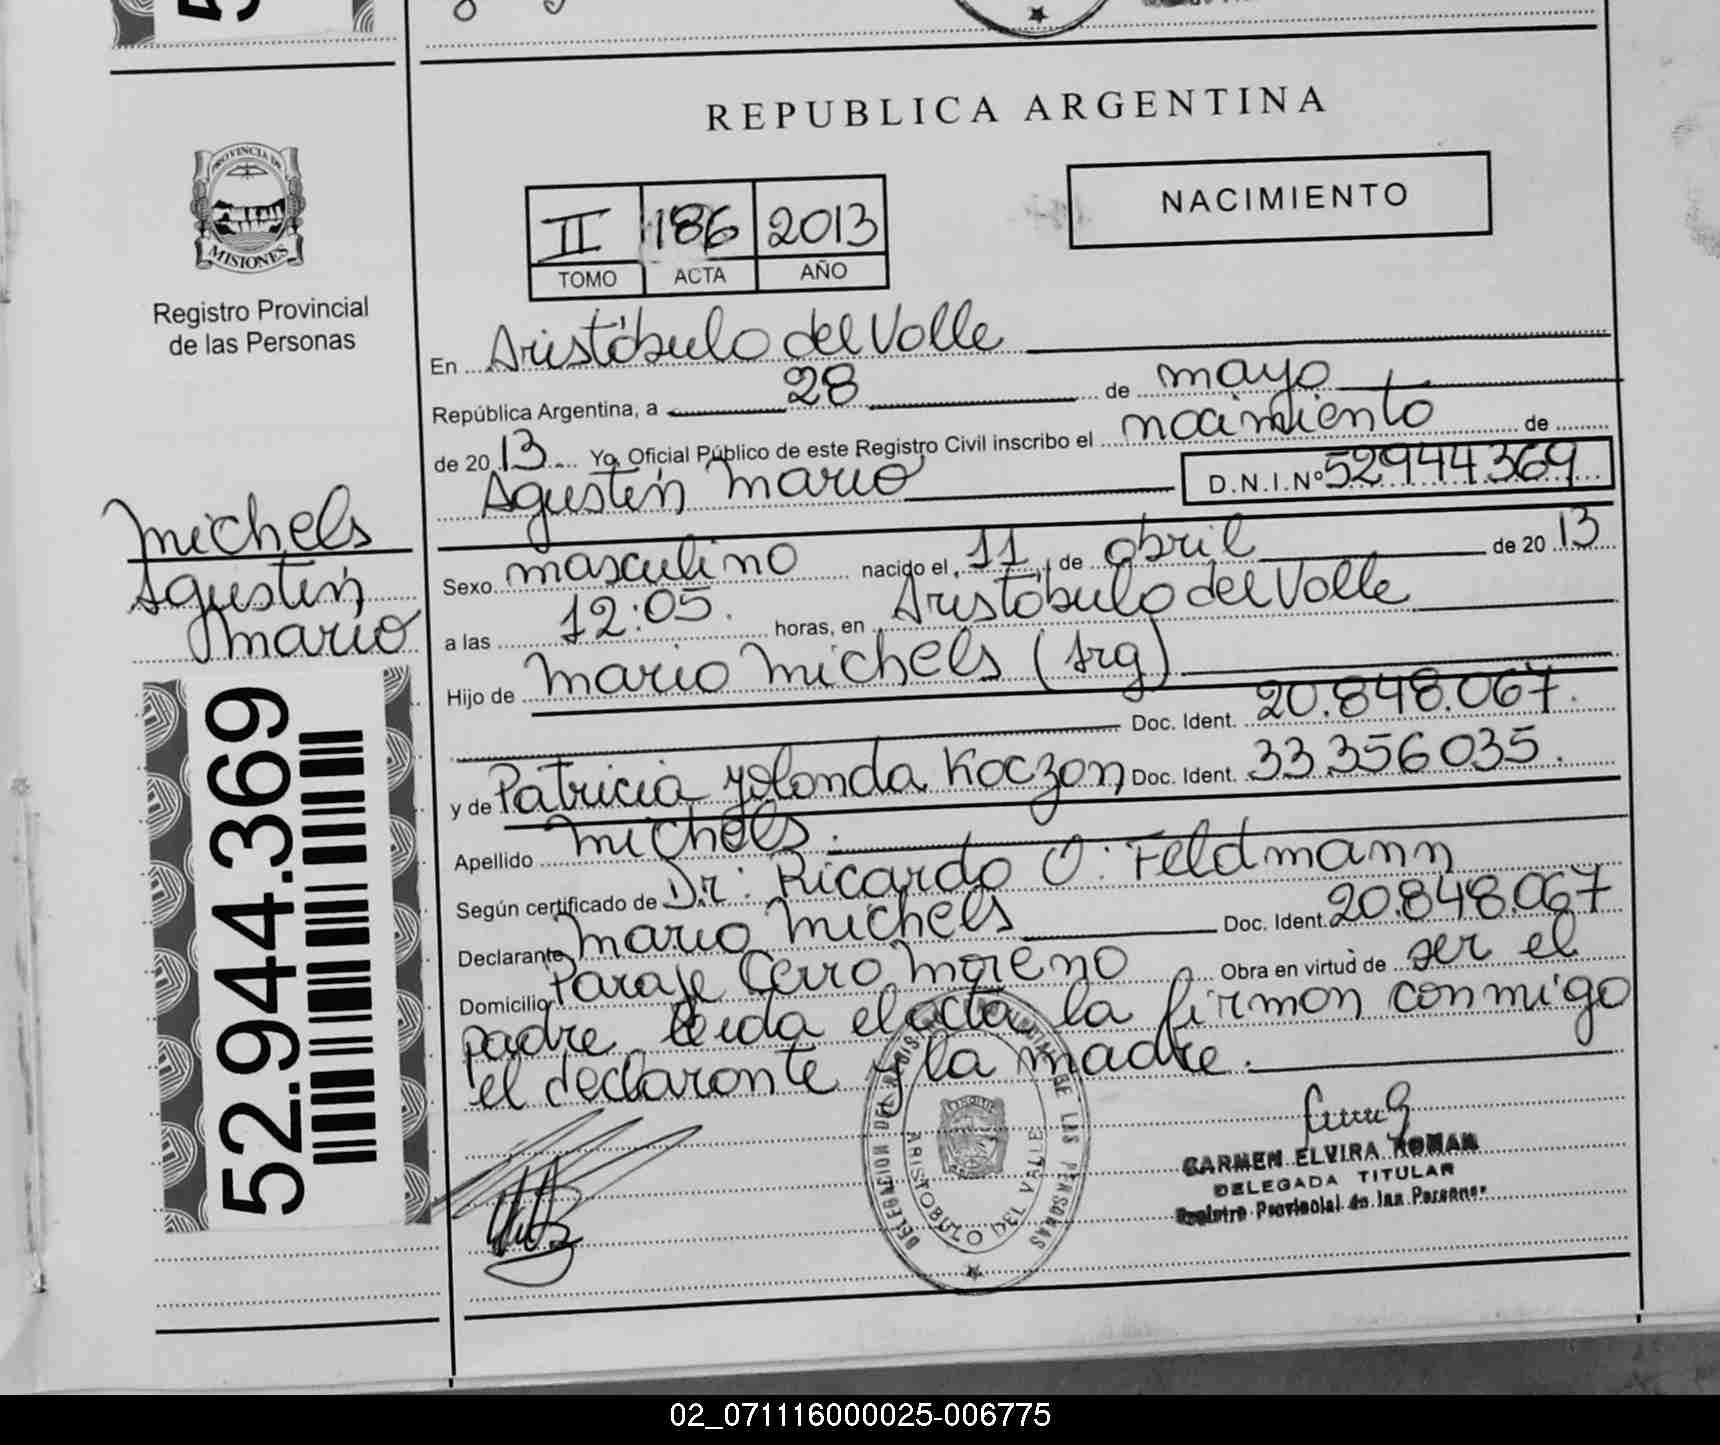 REPUBLICA ARGENTINA
PROVINCIA DE
MISIONES
Registro Provincial
de las Personas
II 186 2013
TOMO ACTA AÑO
NACIMIENTO
En Aristóbulo del Valle
República Argentina, a 28 de mayo
de 20 13 Yo, Oficial Público de este Registro Civil inscribo el nacimiento de
Agustín Mario D.N.I.Nº 52944369
Sexo masculino nacido el 11 de abril de 20 13
a las 12:05. horas, en Aristóbulo del Valle
Hijo de Mario Michels (Arg)
Doc. Ident. 20.848.067.
y de Patricia Yolanda Koczan Doc. Ident. 33.356035.
Apellido Michels.
Según certificado de Dr: Ricardo O. Feldmann
Declarante Mario Michels Doc. Ident. 20.848.067
Domicilio Paraje Cerro Moreno Obra en virtud de ser el
padre leida el acta la firman conmigo
el declarante y la madre.
Michels
Agustín
Mario
52.944.369
DELEGACION DEL REGISTRO DE LAS PERSONAS
ARISTOBULO DEL VALLE
CARMEN ELVIRA ROMAN
DELEGADA TITULAR
Registro Provincial de las Personas
02_071116000025-006775